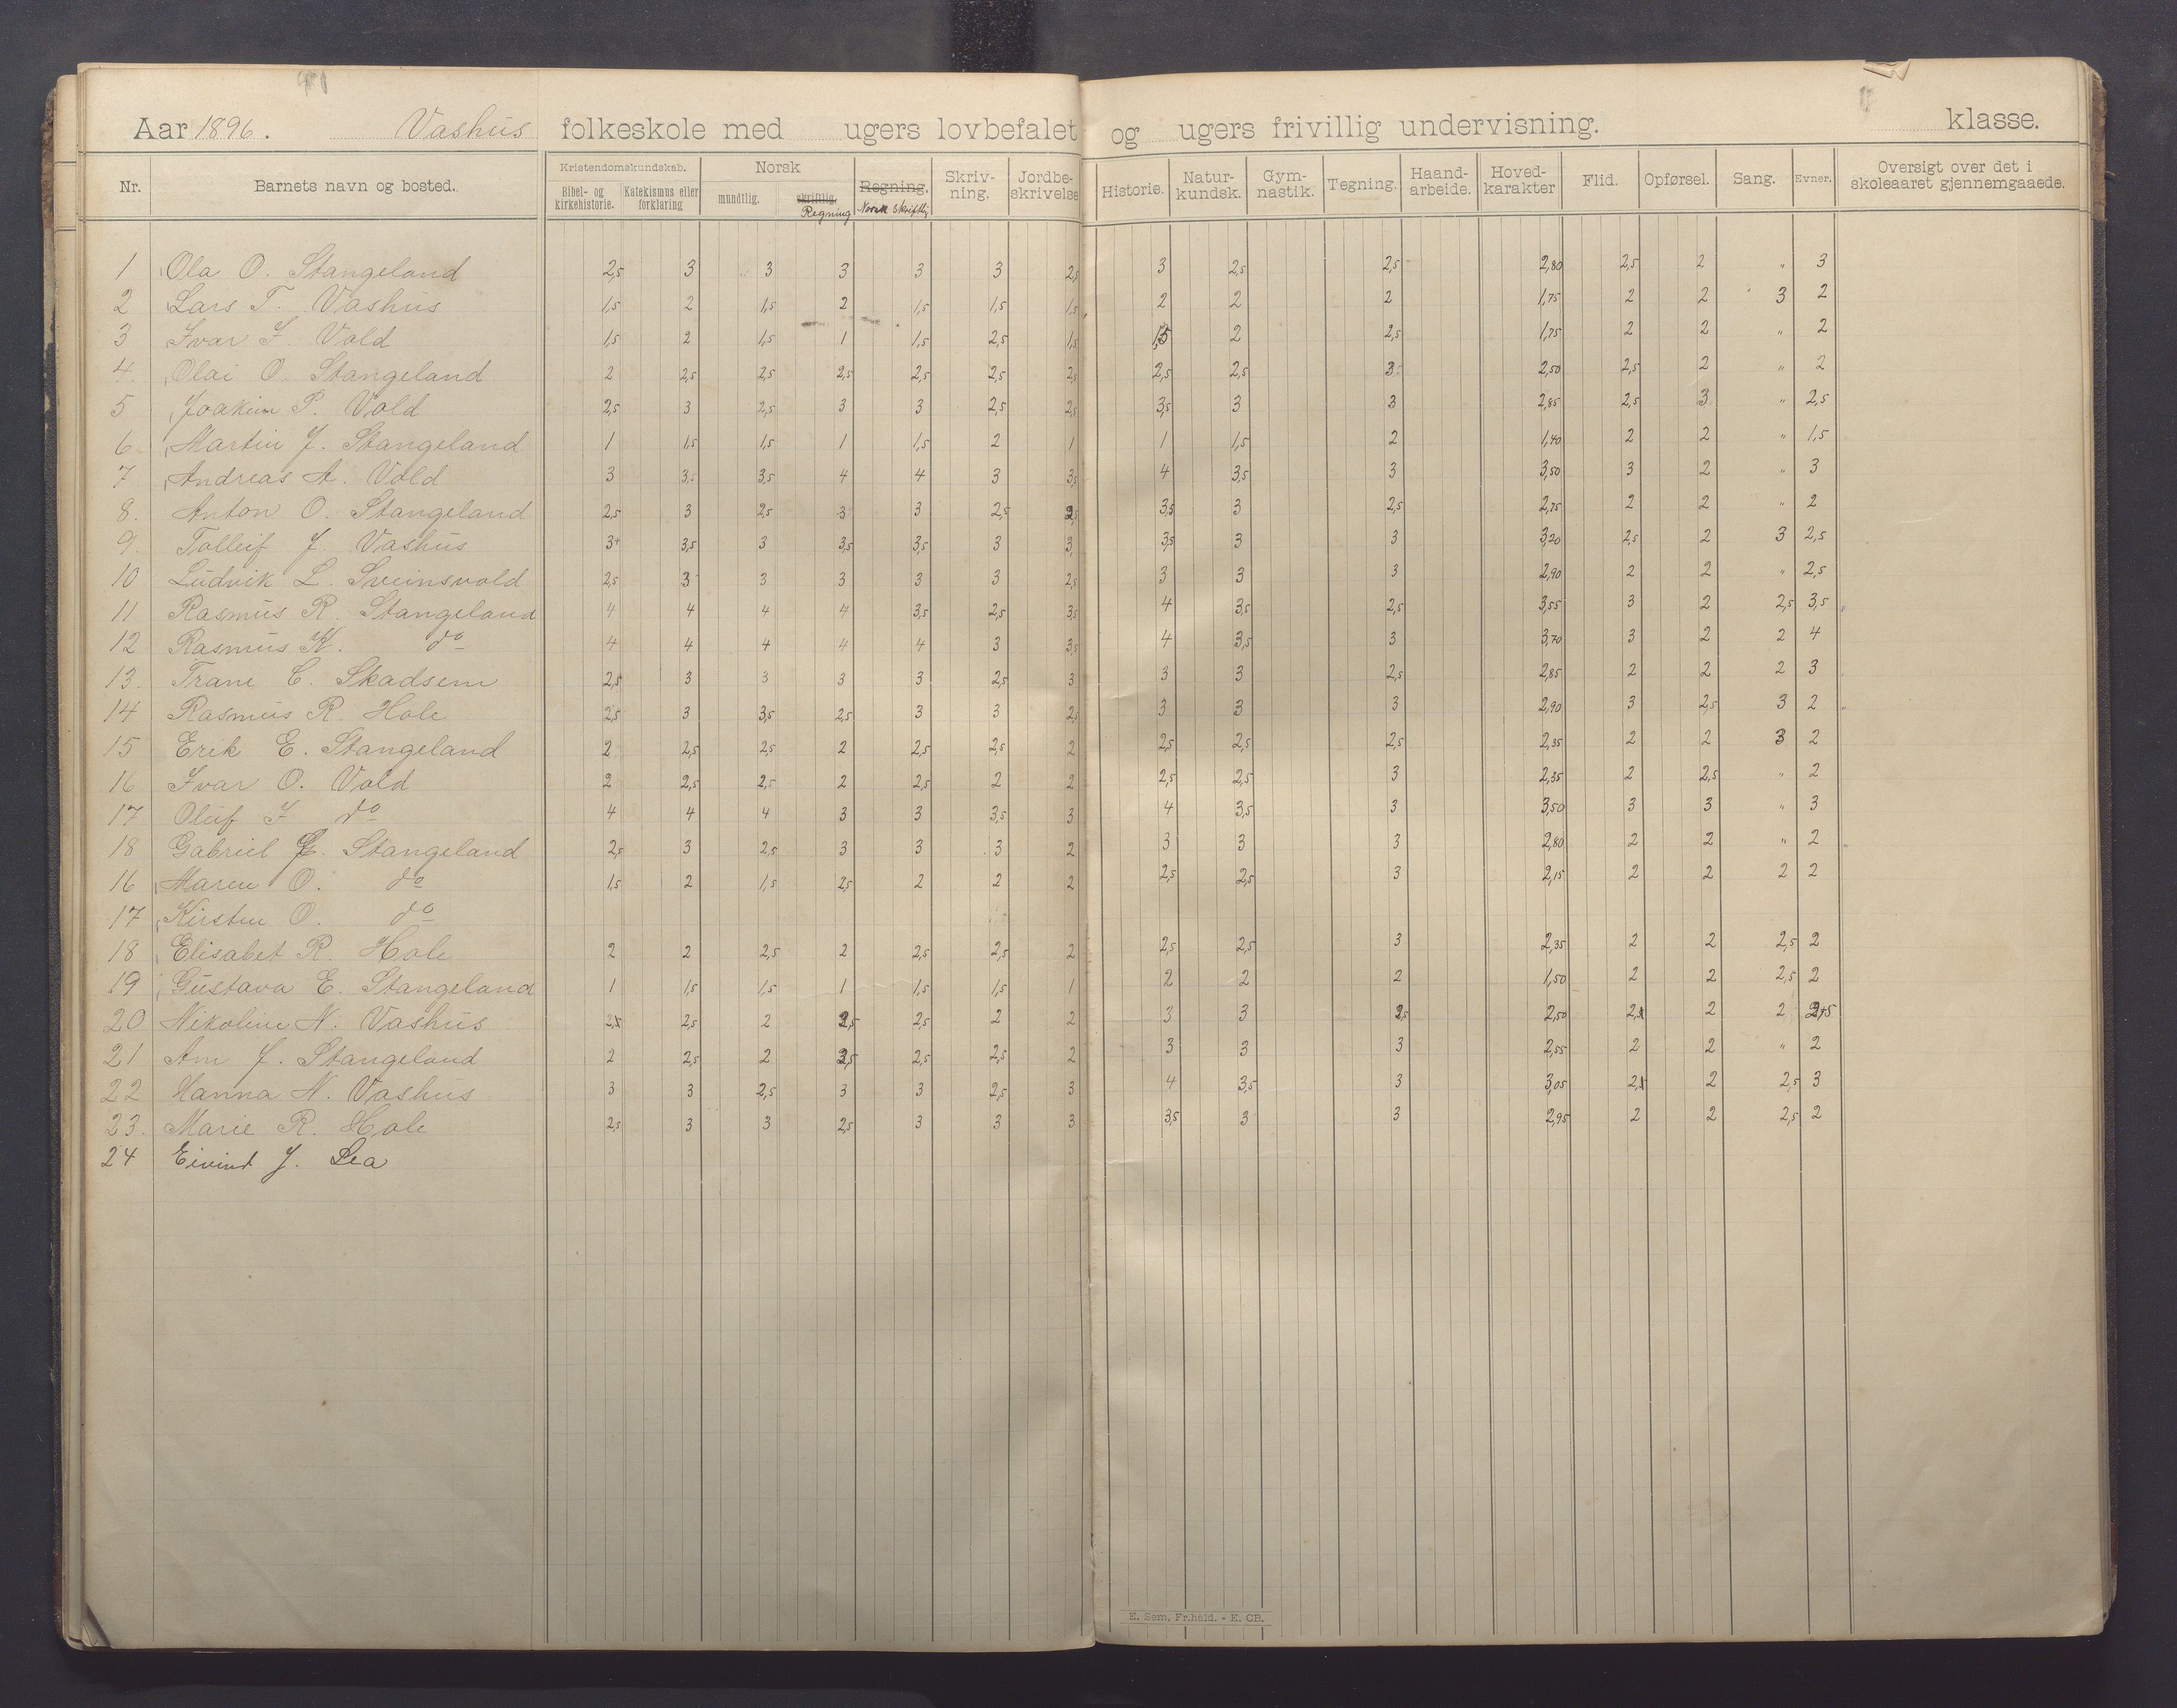 Aar 1896. Vashus folkeskole med ugers lovbefalet og ugers frivillig undervisning. klasse.
Nr. Barnets navn og bosted. Kristendomskundskab. Bibel- og kirkehistorie. Katekismus eller forklaring Norsk mundtlig. skriftlig. Regning Regning. Norsk skriftlig Skriv-ning. Jordbe-skrivelse Historie. Natur-kundsk. Gym-nastik. Tegning. Haand-arbeide. Hoved-karakter Flid. Opførsel. Sang. Evner. Oversigt over det i skoleaaret gjennemgaaede.
1 Ola O. Stangeland 2,5 3 3 3 3 3 2,5 3 2,5 2,5 2,80 2,5 2 " 3
2 Lars T. Vashus 1,5 2 1,5 2 1,5 1,5 1,5 2 2 2 1,75 2 2 3 2
3 Ivar I. Vold 1,5 2 1,5 1 1,5 2,5 1,5 1,5 2 2,5 1,75 2 2 " 2
4. Olai O. Stangeland 2 2,5 2,5 2,5 2,5 2,5 2,5 2,5 2,5 3 2,50 2,5 2 " 2
5 Joakim P. Vold 2,5 3 2,5 3 3 2,5 2,5 3,5 3 3 2,85 2,5 3 " 2,5
6. Martin J. Stangeland 1 1,5 1,5 1 1,5 2 1 1 1,5 2 1,40 2 2 " 1,5
7 Andreas A. Vold 3 3,5 3,5 4 4 3 3,5 4 3,5 3 3,50 3 2 " 3
8. Anton O. Stangeland 2,5 3 2,5 3 3 2,5 2,5 3,5 3 2,5 2,75 2 2 " 2
9. Tolleif J. Vashus 3+ 3,5 3 3,5 3,5 3 3, 3,5 3 3 3,20 2,5 2 3 2,5
10 Ludvik L. Sveinsvold 2,5 3 3 3 3 3 2,5 3 3 3 2,90 2 2 " 2,5
11 Rasmus R. Stangeland 4 4 4 4 3,5 2,5 3,5 4 3,5 2,5 3,55 3 2 2,5 3,5
12 Rasmus K. do 4 4 4 4 4 3 3,5 4 3,5 3 3,70 3 2 2 4
13. Trane C. Skadsem 2,5 3 3 3 3 2,5 3 3 3 2,5 2,85 2 2 2 3
14 Rasmus R. Hole 2,5 3 3,5 2,5 3 3 2,5 3 3 3 2,90 3 2,5 3 2
15 Erik E. Stangeland 2 2,5 2,5 2 2,5 2,5 2 2,5 2,5 2,5 2,35 2 2 3 2
16 Ivar O. Vold 2 2,5 2,5 2 2,5 2 2 2,5 2,5 3 2,35 2 2,5 " 2
17 Oluf I do 4 4 4 3 3 3,5 3 4 3,5 3 3,50 3 3 " 3
18 Gabriel Stangeland 2,5 3 2,5 3 3 3 2 3 3 3 2,80 2 2 " 2
16 Maren O. do 1,5 2 1,5 2,5 2 2 2 2,5 2,5 3 2,15 2 2 2 2
17 Kirsten O. do
18 Elisabet R. Hole 2 2 2,5 2 2,5 2,5 2 2,5 2,5 3 2,35 2 2 2,5 2
19 Gustava E. Stangeland 1 1,5 1,5 1 1,5 1,5 1 2 2 2 1,50 2 2 2,5 2
20 Nikoline N. Vashus 2,5 2,5 2 2,5 2,5 2 2 3 3 2,5 2,50 2 2 2 2,5
21 Ane J. Stangeland 2 2,5 2 2,5 2,5 2,5 2 3 3 3 2,55 2 2 " 2
22 Hanna N. Vashus 3 3 2,5 3 3 2,5 3 4 3,5 3 3,05 2 2 2,5 3
23. Marie R. Hole 2,5 3 3 2,5 3 3 3 3,5 3 3 2,95 2 2 2,5 2
24 Eivind J. Lea
E. Sem. Fr.hald. - E. CB.